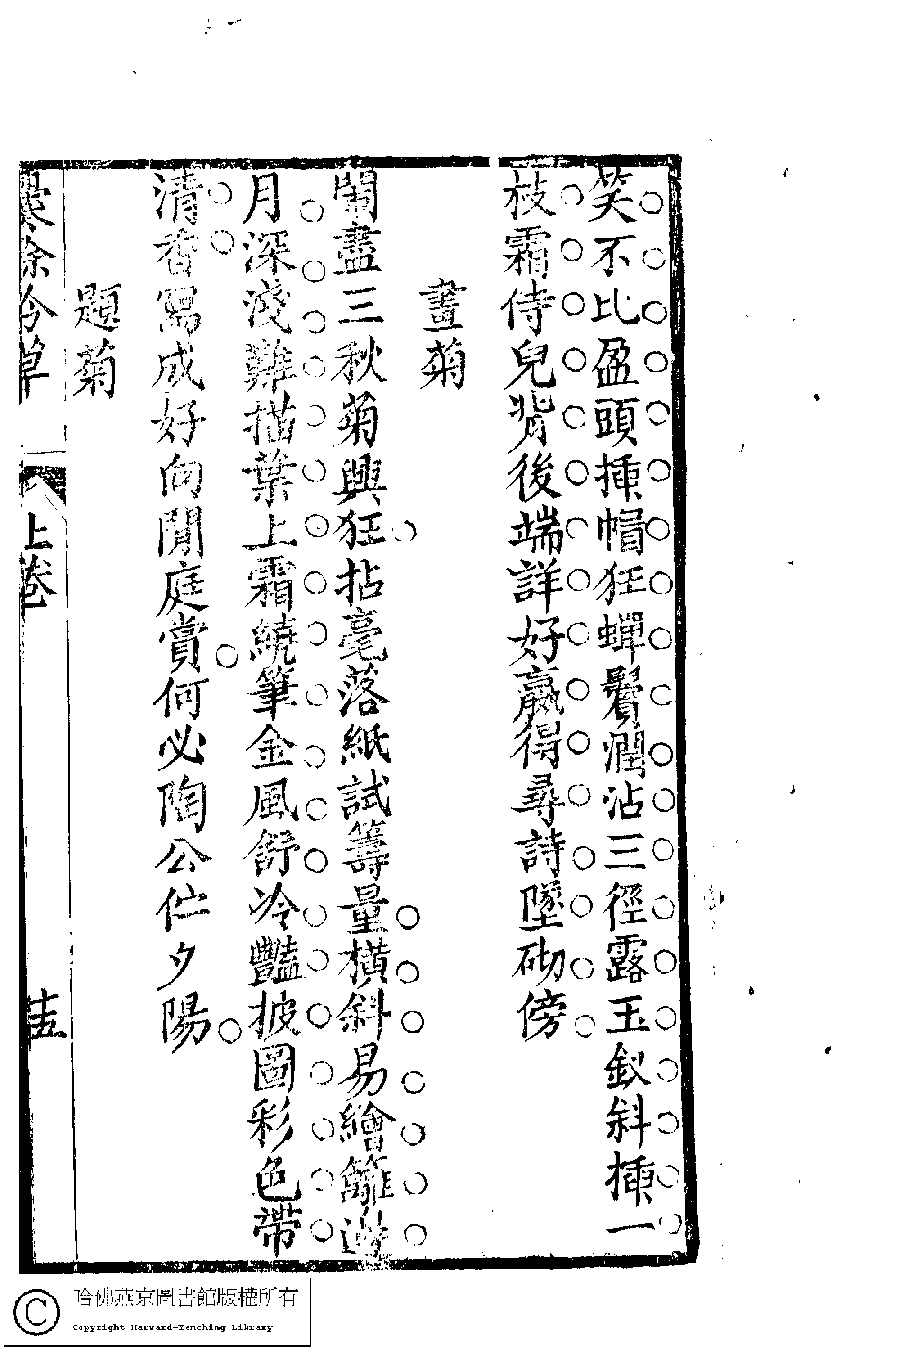 笑不比盈頭揷帽狂蟬鬢潤沾三徑露玉釵斜揷一
枝霜侍兒背後端詳好贏得尋詩墜砌傍
畫菊
開盡三秋菊興狂拈毫落紙試籌量橫斜易繪籬邊
月深淺難描葉上霜繞筆金風舒冷豔披圖彩色帶
清香寫成好向閒庭賞何必陶公伫夕陽
題菊
餘今草
上卷
哈佛燕京圖書館版權所有
Copyright Harvard-Yenching Library